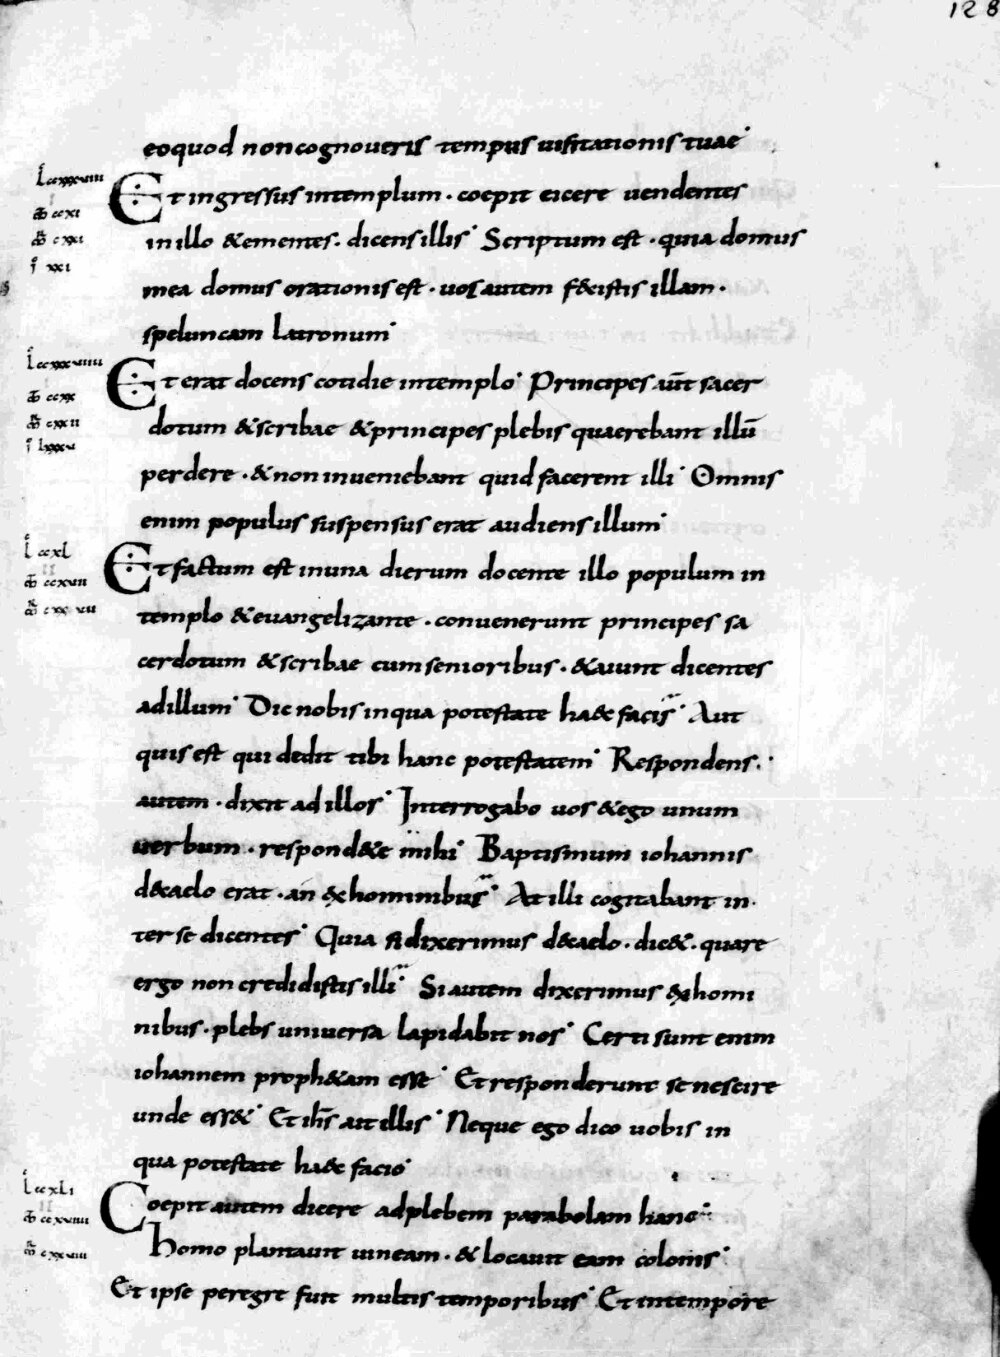 128
eoquod noncognoueris tempus uisitationis tuae
Et ingressus intemplum · coepit eicere uendentes
inillo &ementes · dicens illis Scriptum est · quia domus
mea domus orationis est · uos autem f&cistis illam ·
speluncam latronum
Et erat docens cotidie intemplo Principes aut̄ sacer
dotum &scribae &principes plebis quaerebant illū
perdere · &non inueniebant quid facerent illi Omnis
enim populus suspensus erat audiens illum
Et factum est inuna dierum docente illo populum in
templo &euangelizante · conuenerunt principes sa
cerdotum &scribae cum senioribus · &aiunt dicentes
adillum Dic nobis inqua potestate ha&c facis Aut
quis est qui dedit tibi hanc potestatem Respondens ·
autem · dixit ad illos Interrogabo uos &ego unum
uerbum · respond&e mihi Baptismum iohannis
d&caelo erat · an &hominibus At illi cogitabant in
ter se dicentes Quia si dixerimus d&caelo · dic& · quare
ergo non credidistis illi Si autem dixerimus &homi
nibus · plebs uniuersa lapidabit nos Certi sunt enim
iohannem proph&am esse Et responderunt se nescire
unde ess& Et ih̄s ait illis Neque ego dico uobis in
qua potestate ha&c facio
Coepit autem dicere adplebem parabolam hanc
homo plantauit uineam · &locauit eam colonis
Et ipse peregre fuit multis temporibus Et intempore